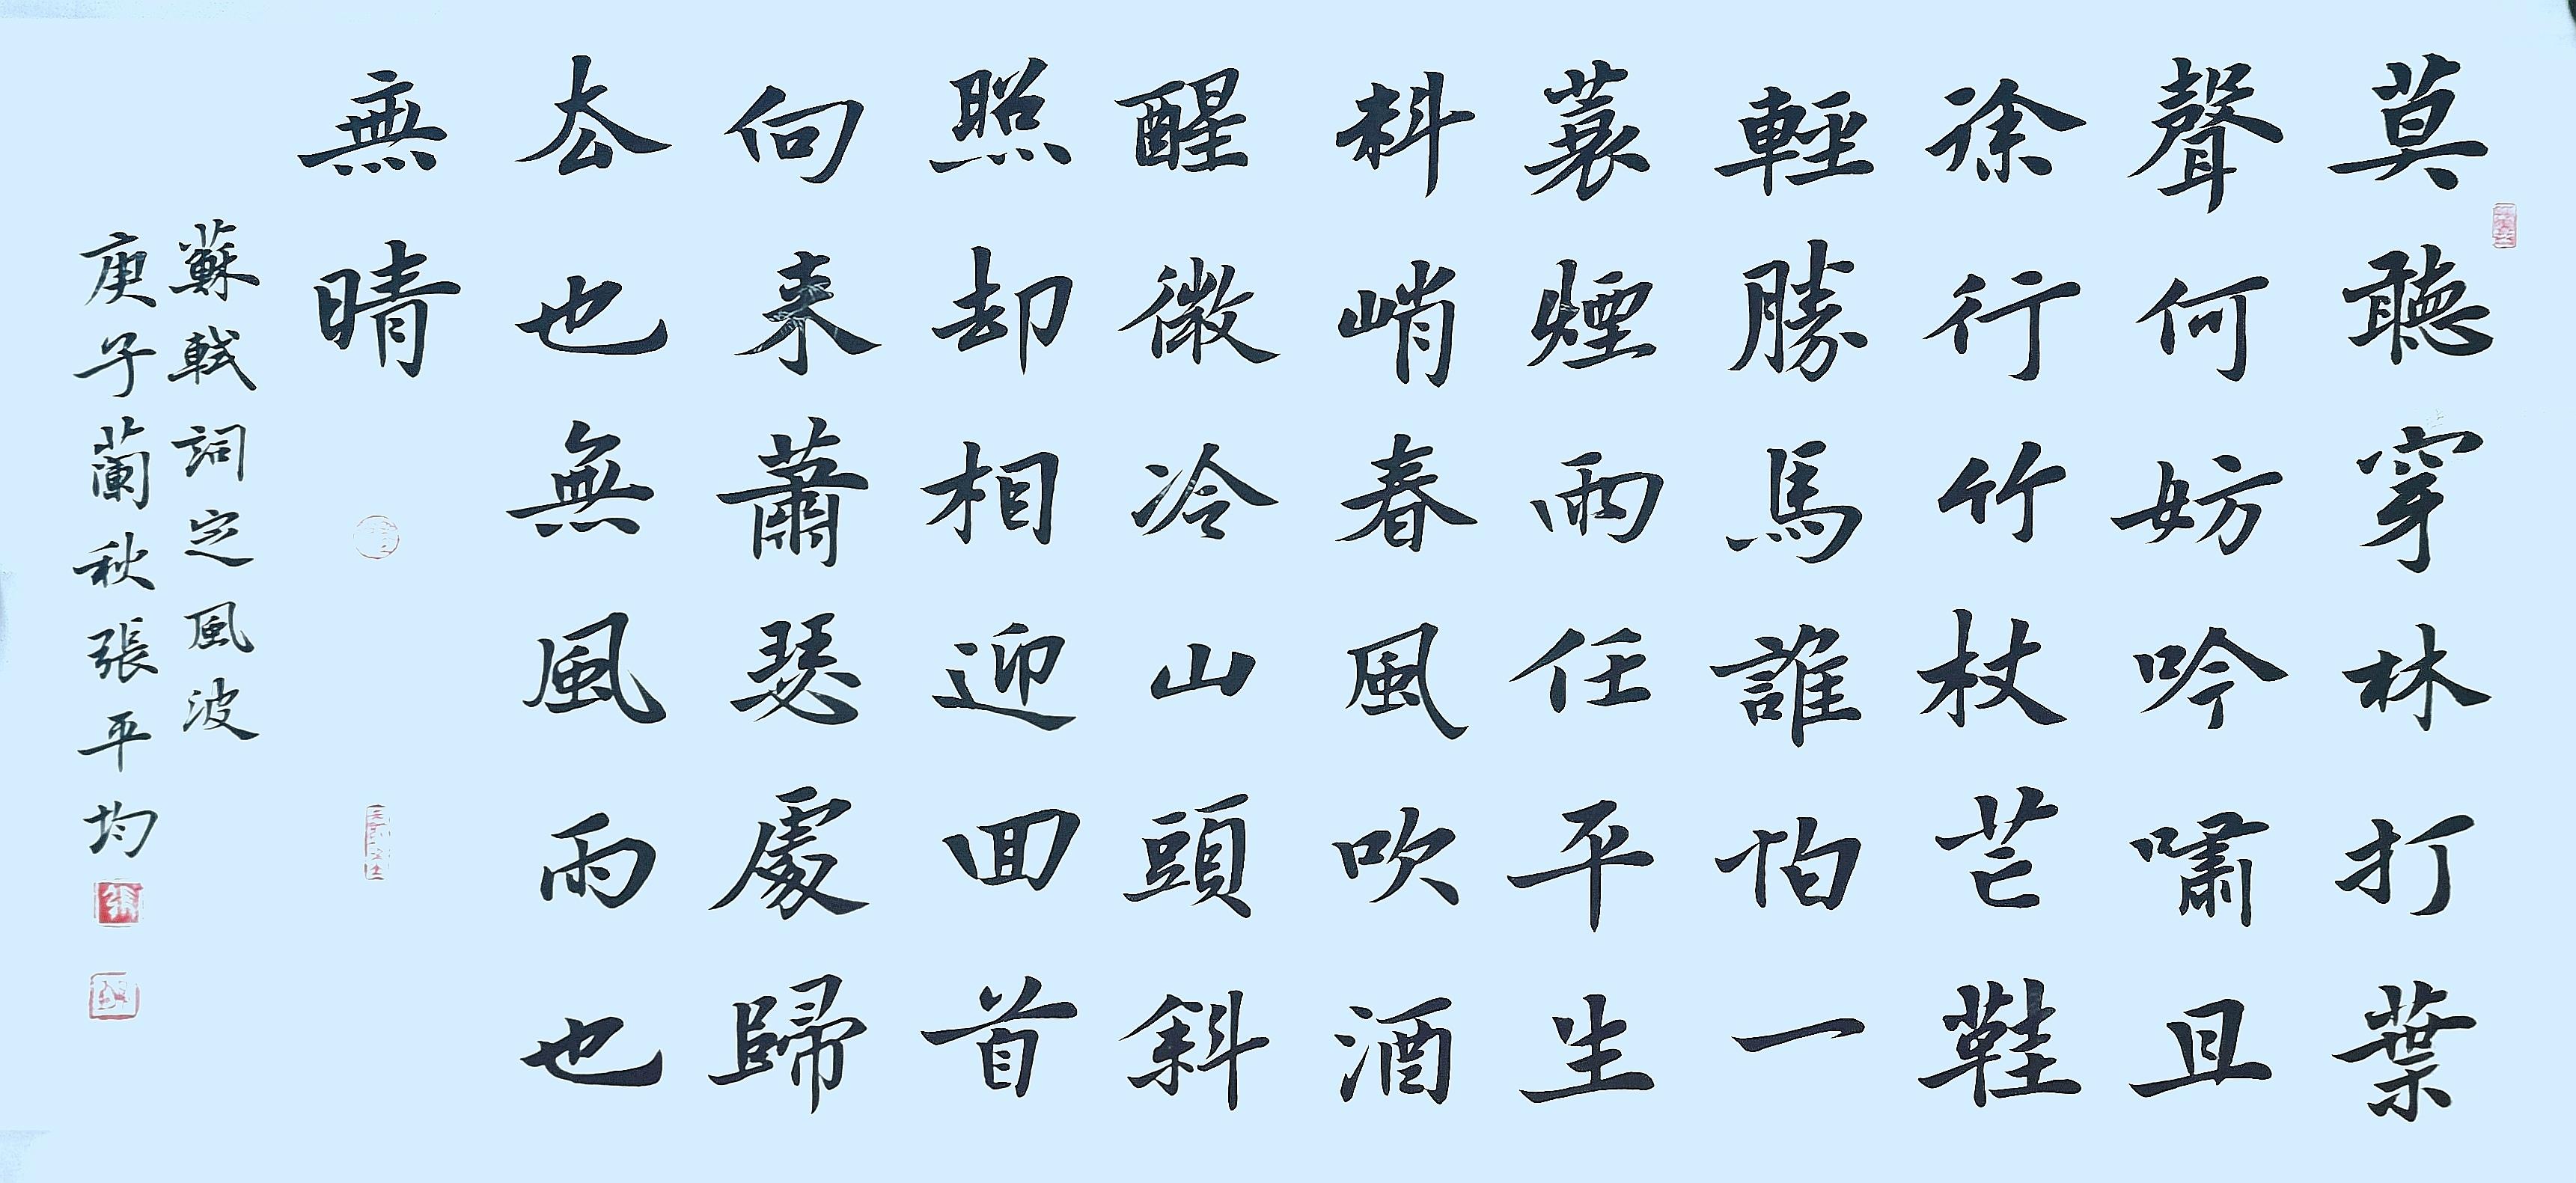 莫聽穿林打葉
聲何妨吟嘯且
徐行竹杖芒鞋
輕勝馬誰怕一
蓑煙雨任平生
料峭春風吹酒
醒微冷山頭斜
照却相迎回首
向來蕭瑟處歸
去也無風雨也
無晴
蘇軾詞定風波
庚子蘭秋張平均